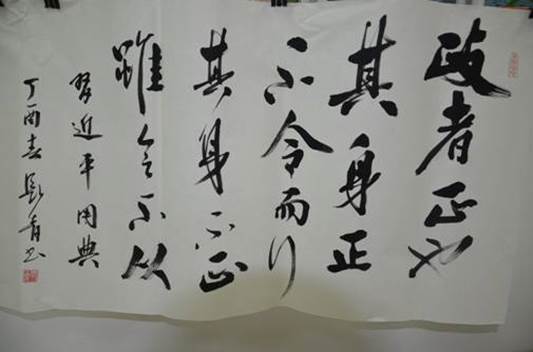 政者正也
其身正
不令而行
其身不正
雖令不从
習近平用典
丁酉春影青书